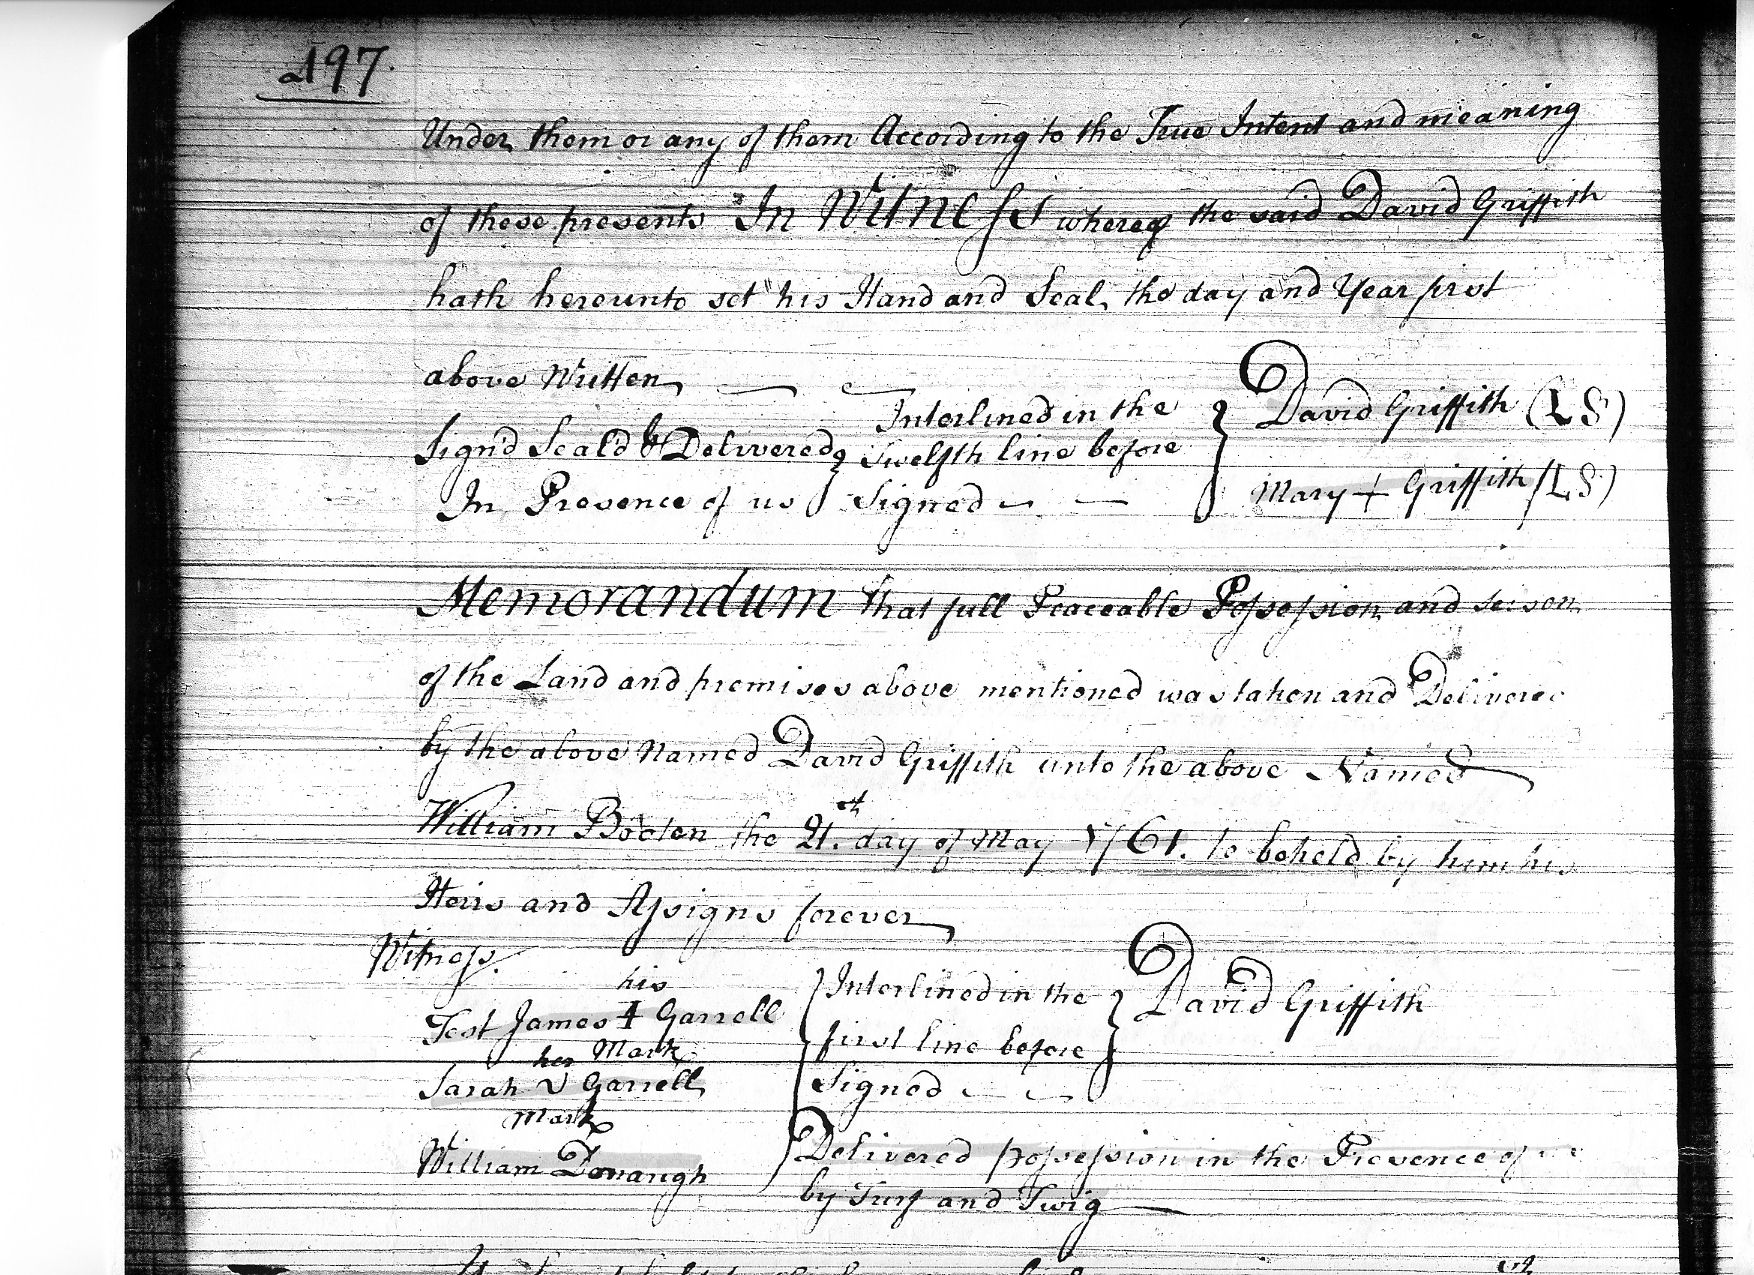 197.
Under them or any of them According to the True Intent and meaning
of these presents In Witness whereof the said David Griffith
hath hereunto set his Hand and Seal the day and Year first
above Written
Sign'd Seal'd & Delivered
In Presence of us
Interlined in the
Twelfth line before
Signed
David Griffith (LS)
Mary + Griffith (LS)
Memorandum that full Peaceable Possession and seison
of the Land and premises above mentioned was taken and Delivered
by the above Named David Griffith unto the above Named
William Booten the 21.st day of May 1761. to be held by him his
Heirs and Assigns forever
Witness.
his
Test James + Garrell
Mark
her
Sarah V Garrell
Mark
William Donaugh
Interlined in the
first line before
Signed
David Griffith
Delivered possession in the Presence of
by Turf and Twig